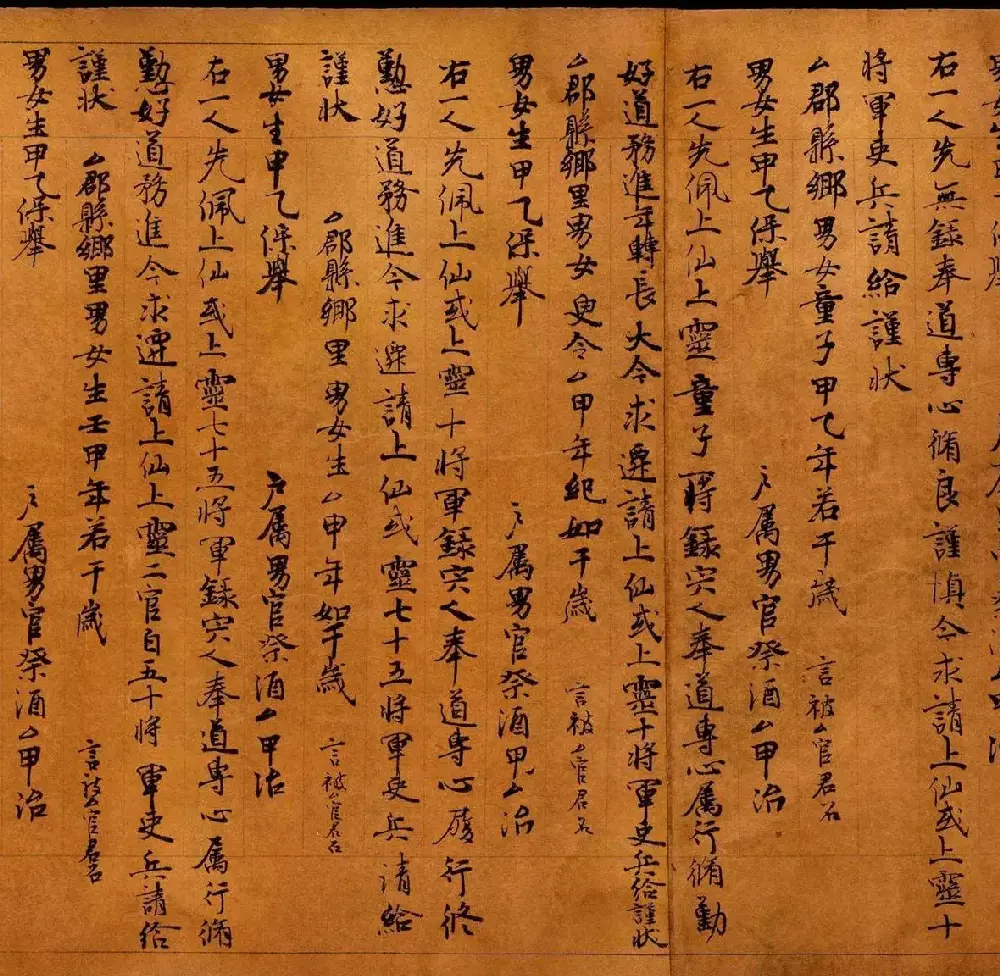 右一人先無籙奉道專心脩良謹慎今求請上仙或上靈十
將軍吏兵請給謹狀
厶郡縣鄉男女童子甲乙年若干歲 言被厶官君召
男女生甲乙保舉 戶屬男官祭酒厶甲治
右一人先佩上仙上靈童子一將籙宍人奉道專心厲行脩勤
好道務進年轉長大今求遷請上仙或上靈十將軍吏兵給謹狀
厶郡縣鄉里男女叟令厶甲年紀如干歲 言被厶官君召
男女生甲乙保舉 戶屬男官祭酒甲厶治
右一人先佩上仙或上靈十將軍籙宍人奉道專心履行脩
懃好道務進今求遷請上仙或靈七十五將軍吏兵請給
謹狀 厶郡縣鄉里男女生厶甲年如干歲 言被厶官君召
男女生甲乙保舉 戶屬男官祭酒厶甲治
右一人先佩上仙或上靈七十五將軍籙宍人奉道專心厲行脩
懃好道務進今求遷請上仙上靈二官百五十將軍吏兵請給
謹狀 厶郡縣鄉里男女生壬甲年若干歲 言被厶官君召
男女生甲乙保舉 戶屬男官祭酒厶甲治